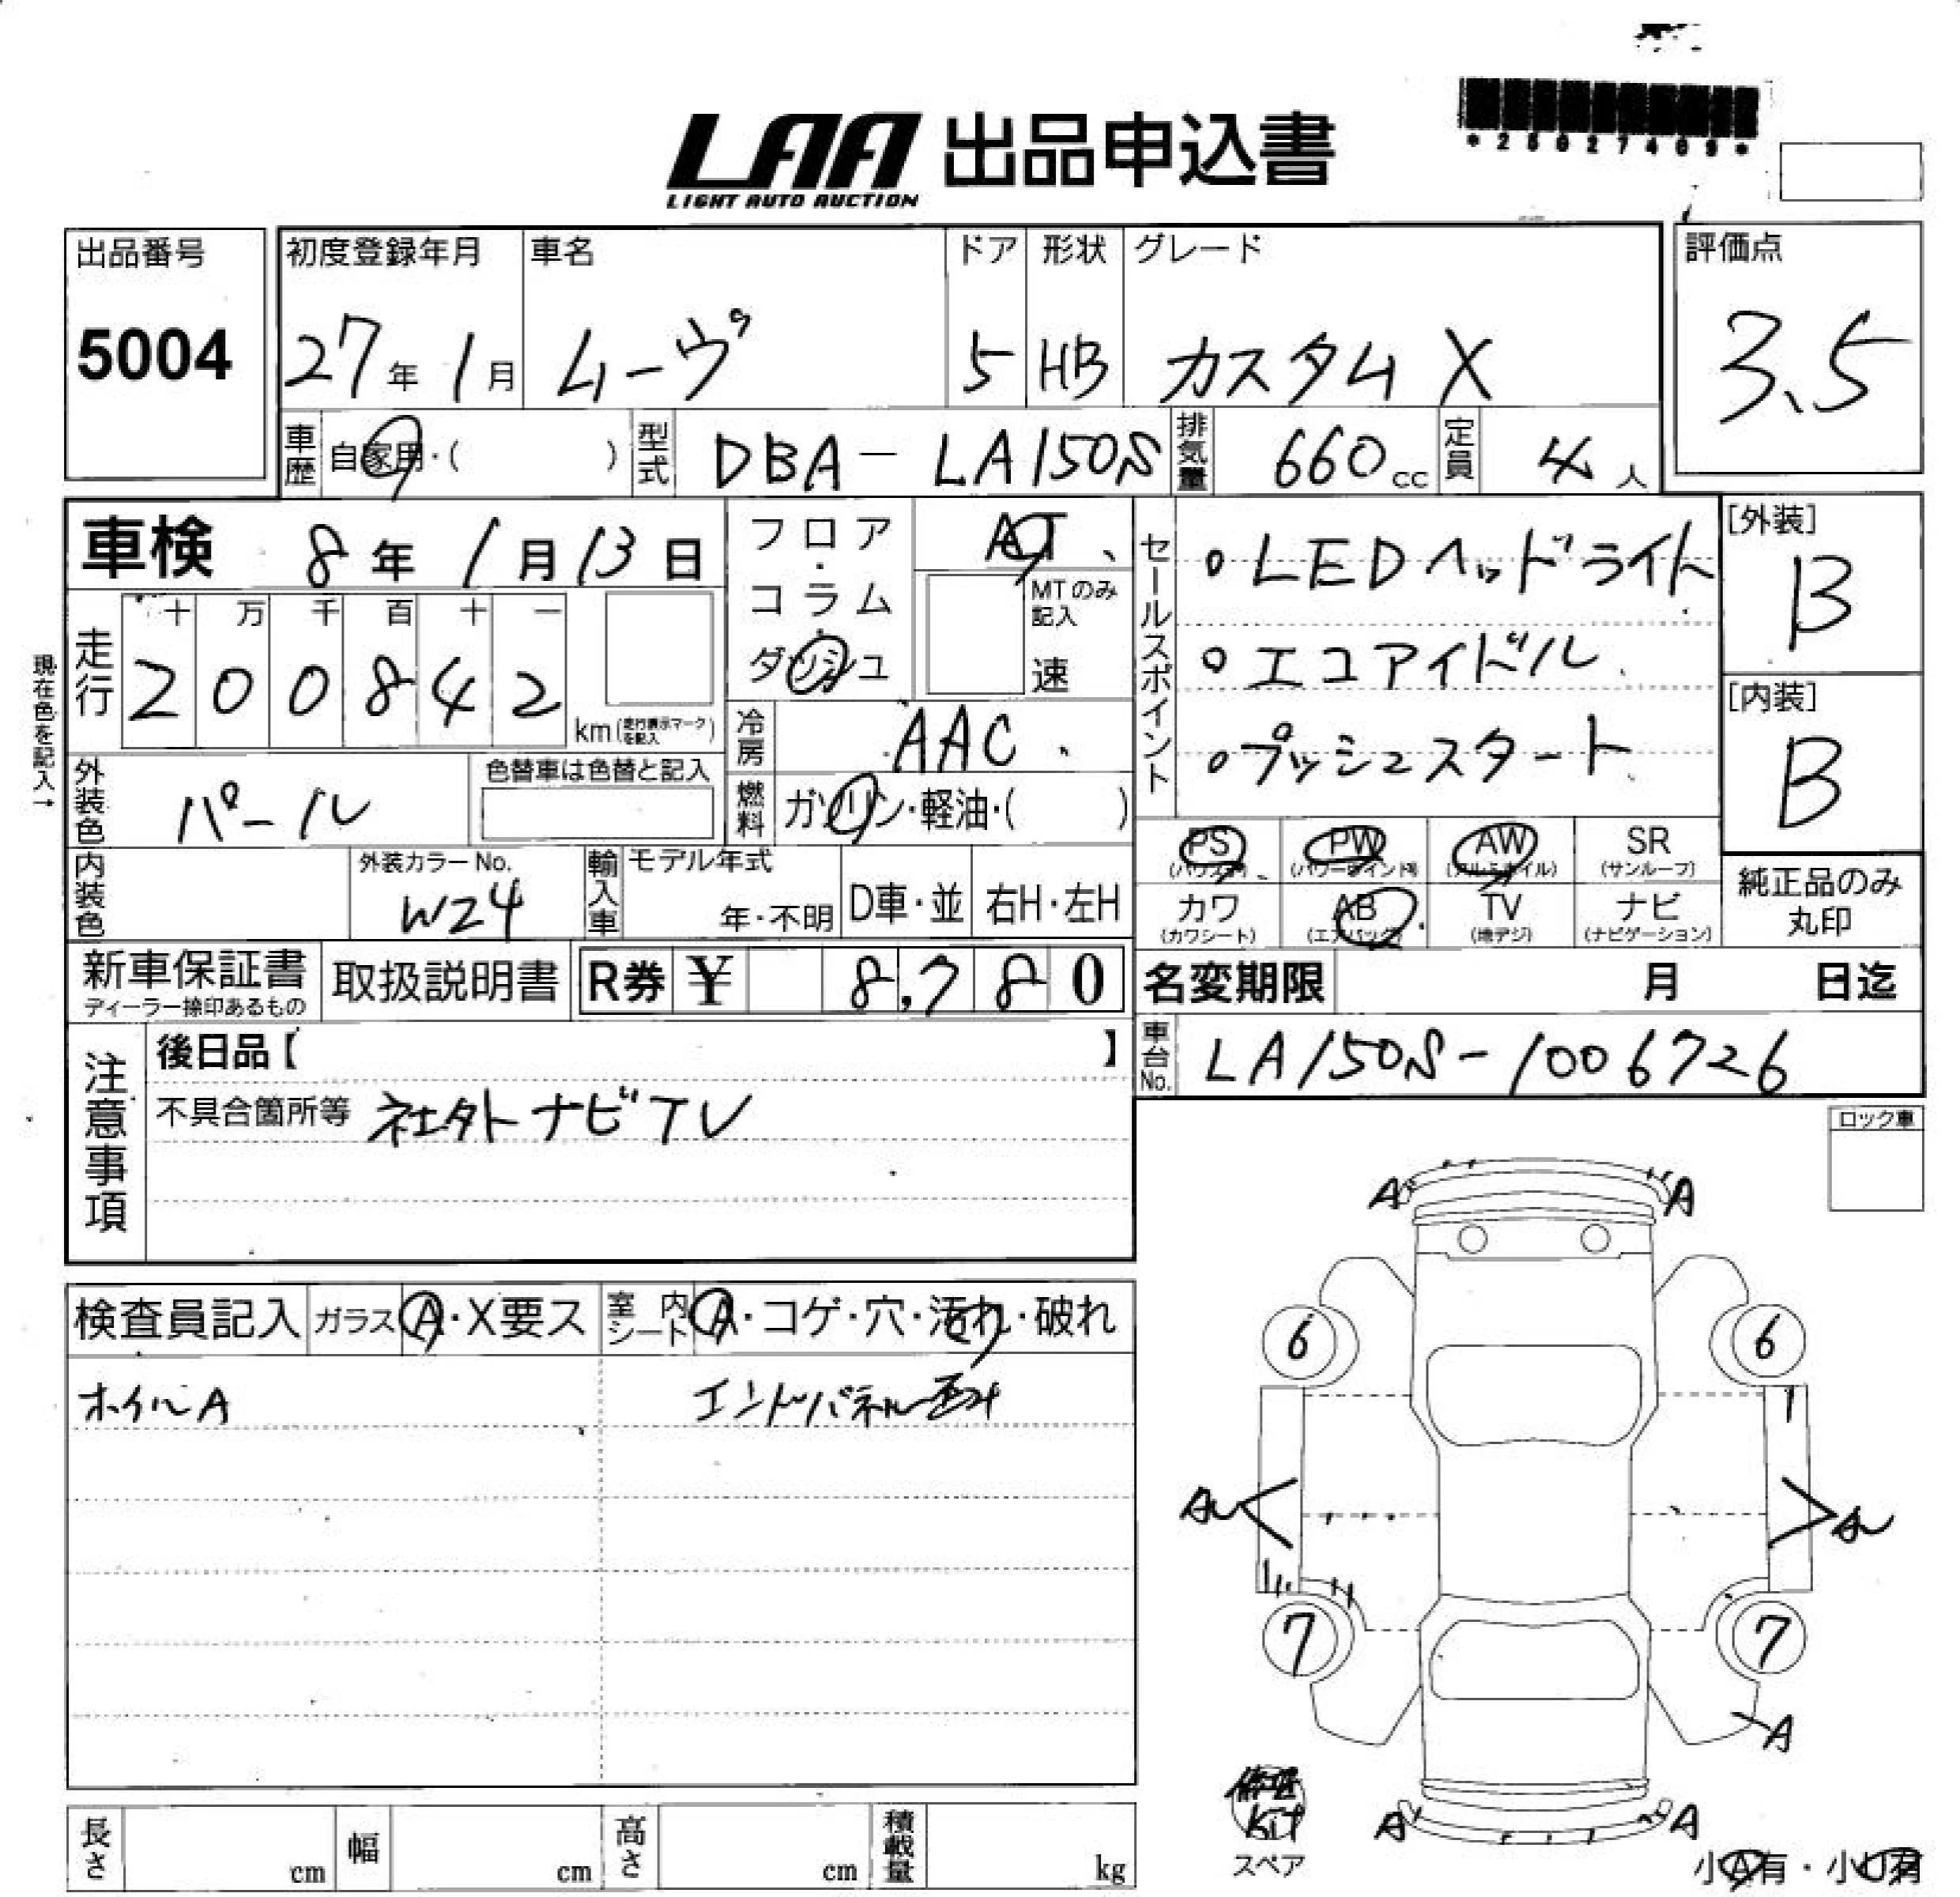 *25027409*
LAA 出品申込書
LIGHT AUTO AUCTION
出品番号 5004
初度登録年月 27年 1月
車名 ムーヴ
ドア 5
形状 HB
グレード カスタム X
評価点 3.5
車歴 自家用・( )
型式 DBA-LA150S
排気量 660cc
定員 4人
車検 8年 1月 13日
フロア・コラム・ダッシュ
AT
MTのみ記入 速
セールスポイント
・LEDヘッドライト
・エコアイドル
・プッシュスタート
[外装] B
[内装] B
現在色を記入→
走行 十 万 千 百 十 一
2 0 0 8 4 2 km (走行表示マークを記入)
冷房 AAC
外装色 パール
色替車は色替と記入
燃料 ガソリン・軽油・( )
PS (パワステ) PW (パワーウインドゥ) AW (アルミホイル) SR (サンルーフ)
カワ (カワシート) AB (エアバッグ) TV (地デジ) ナビ (ナビゲーション)
純正品のみ丸印
内装色
外装カラーNo. W24
輸入車 モデル年式 年・不明 D車・並 右H・左H
新車保証書 ディーラー捺印あるもの
取扱説明書
R券 ¥ 8,780
名変期限 月 日迄
車台No. LA150S-1006726
注意事項
後日品【 】
不具合箇所等 社外ナビTV
ロック車
検査員記入 ガラス A・X要ス
室内シート A・コゲ・穴・汚れ・破れ
ホイルA エンドパネル
A A
6 6
7 7
A
A A
修理kit
スペア
小A有・小U有
長さ cm 幅 cm 高さ cm 積載量 kg